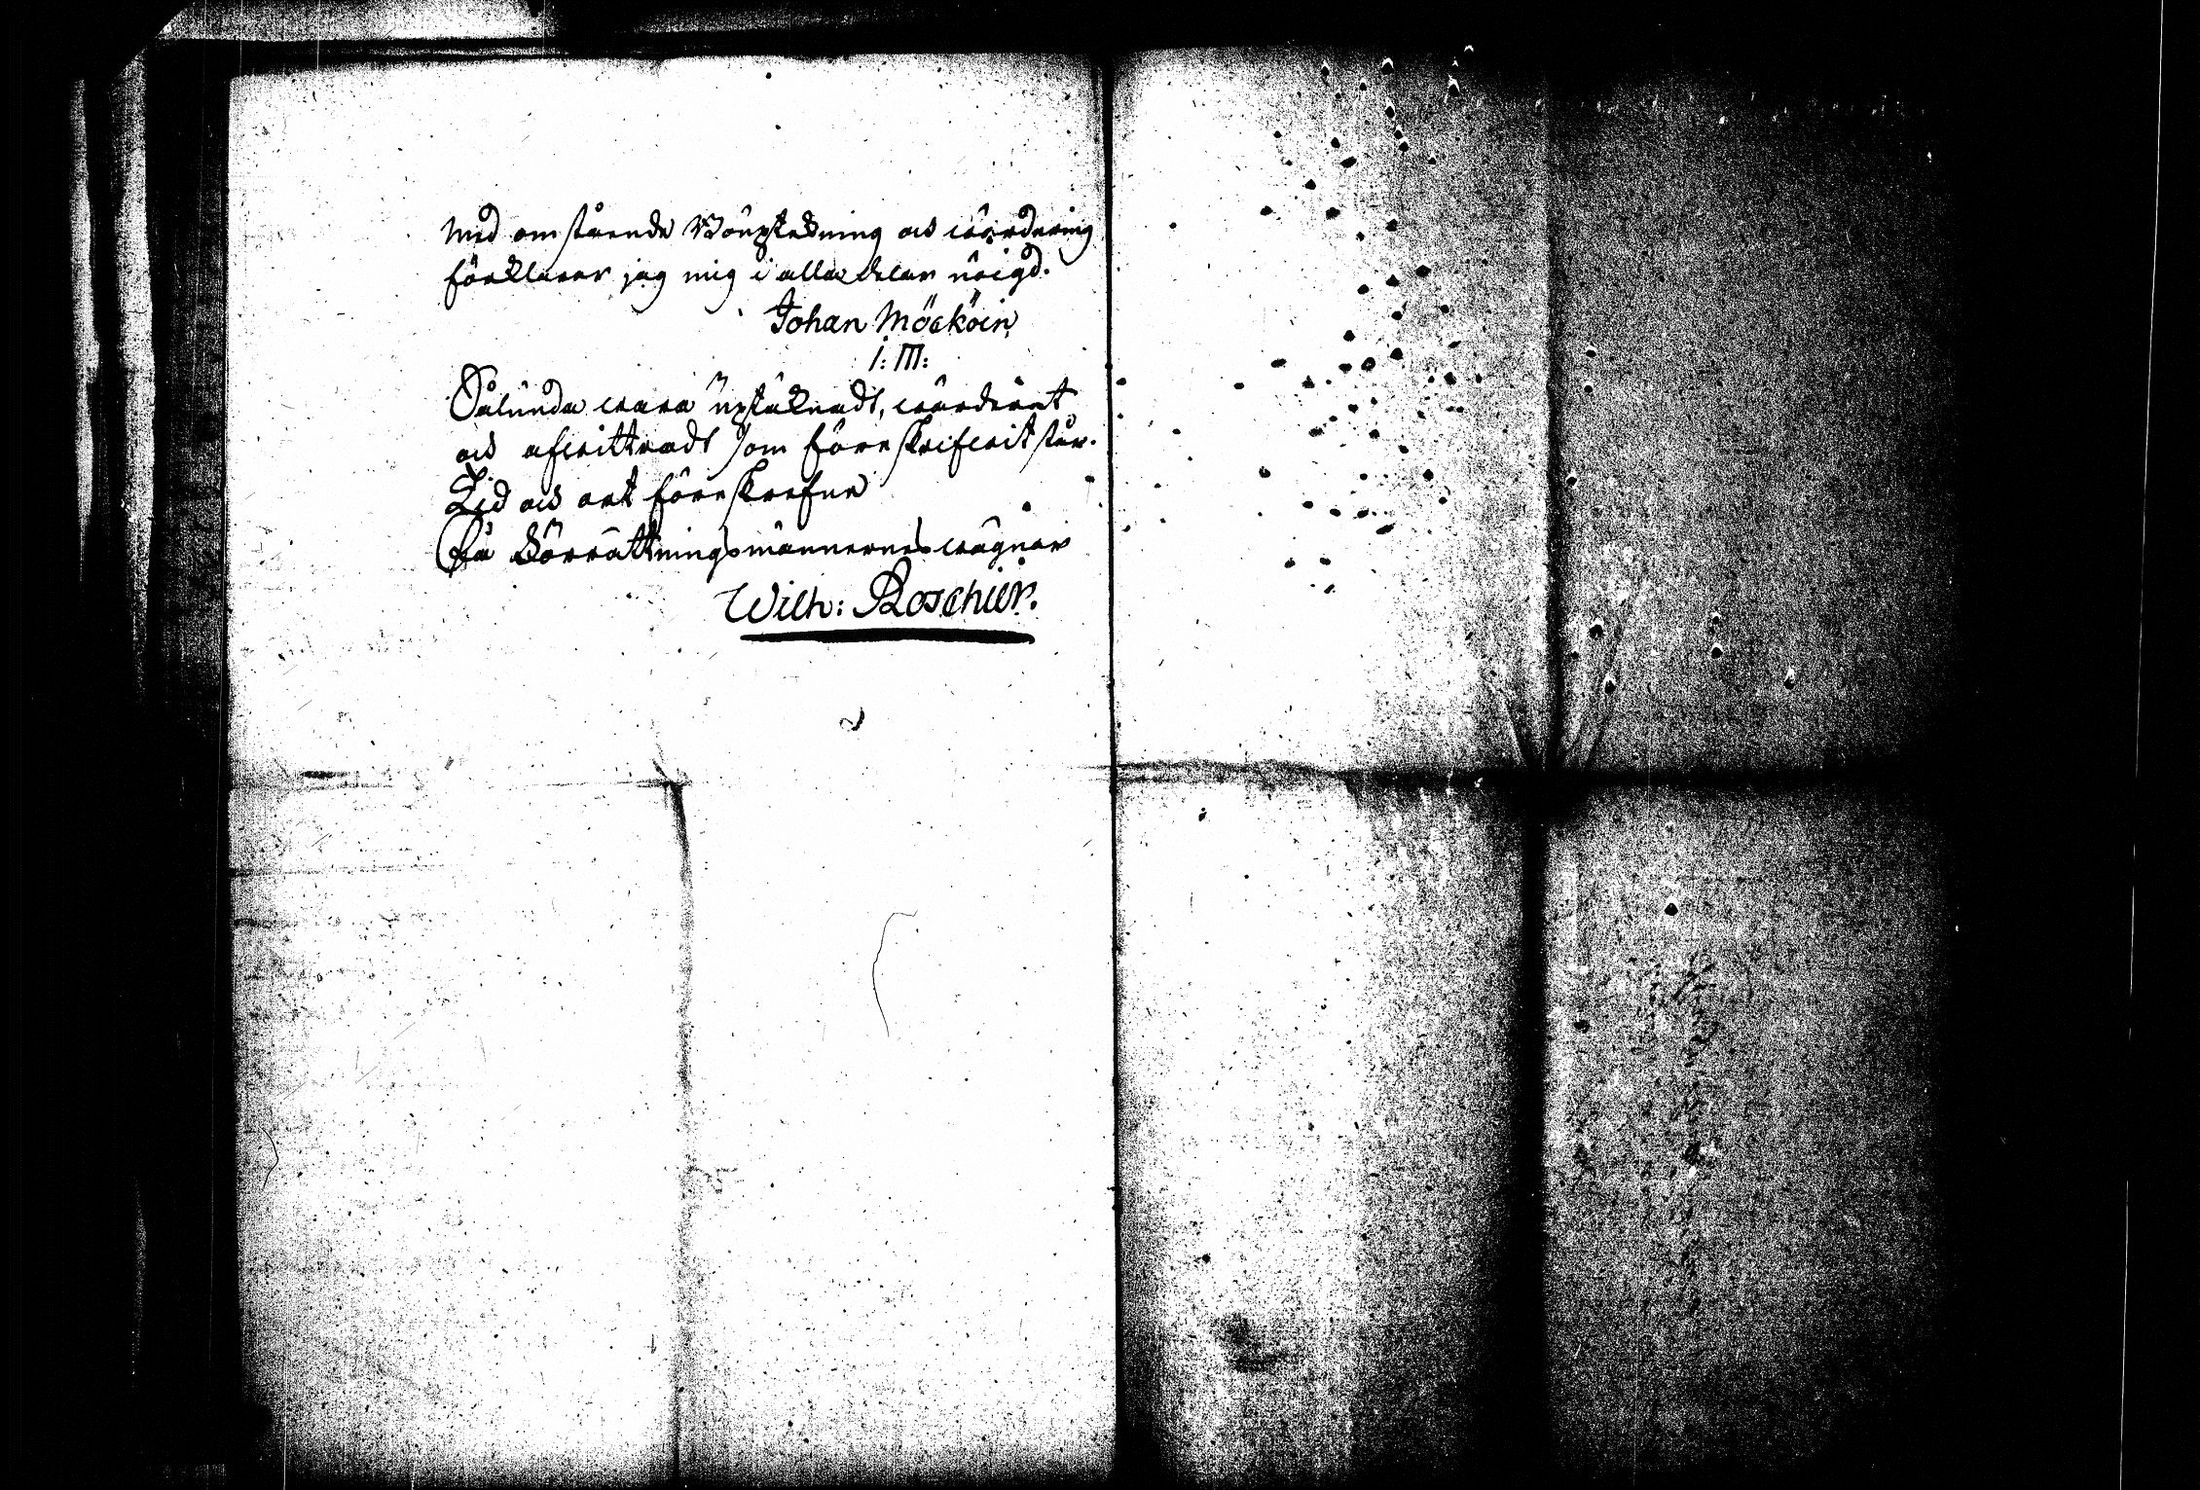 Med omstående Bouptekning och värdering
förklarar jag mig i alla delar nöigd.
Johan Möcköin
I: M:
Sålunda vara uptäknadt, värderat
och afvittradt somföreskrifvit står.
Tid och ort föreskrefne
På Förrättningsmännernes vägnar
Wilh: Roschier.